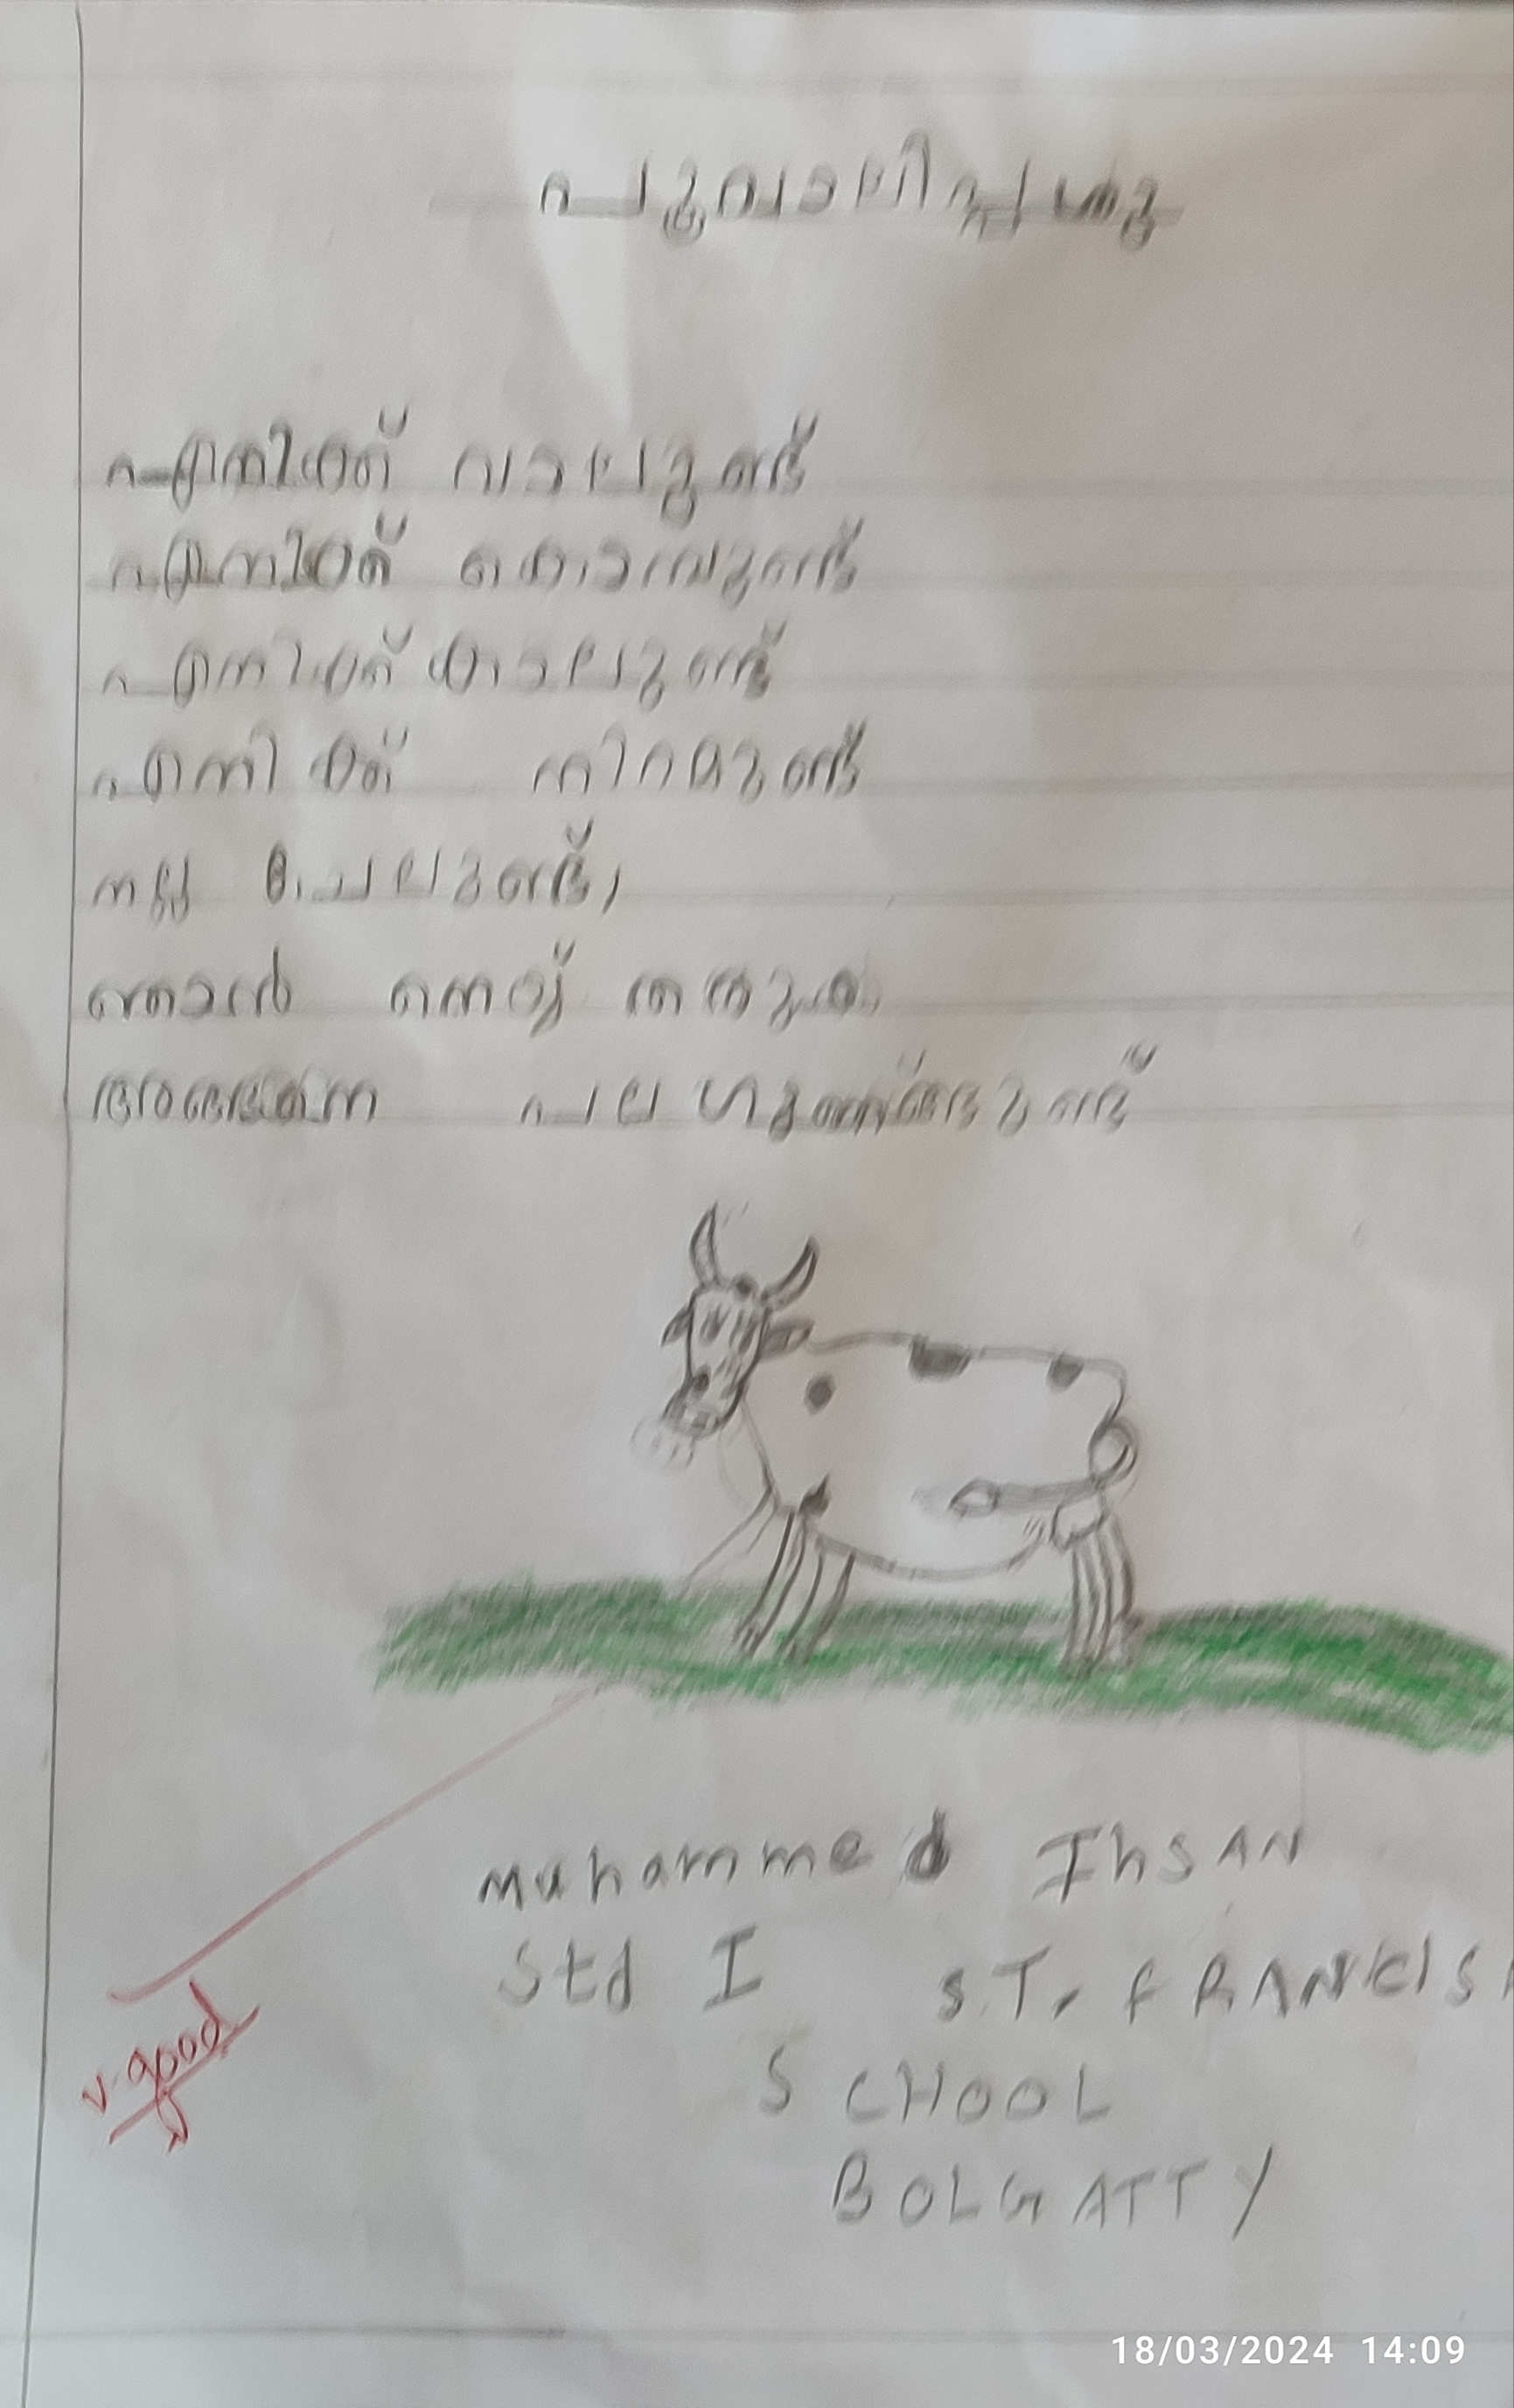 എനിക്ക് വാലുണ്ട്
എനിക്ക് കൊമ്പുണ്ട്
എനിക്ക് കാലുണ്ട്
എനിക്ക് നിറമുണ്ട്
നല്ല ചേലുണ്ട്,
ഞാൻ നെയ്യ് തരും
അങ്ങനെ പല ഗുണങ്ങളുണ്ട്
Muhammed IhSAN
Std I S.T. FRANCIS
SCHOOL
BOLGATTY
v. good
18/03/2024 14:09